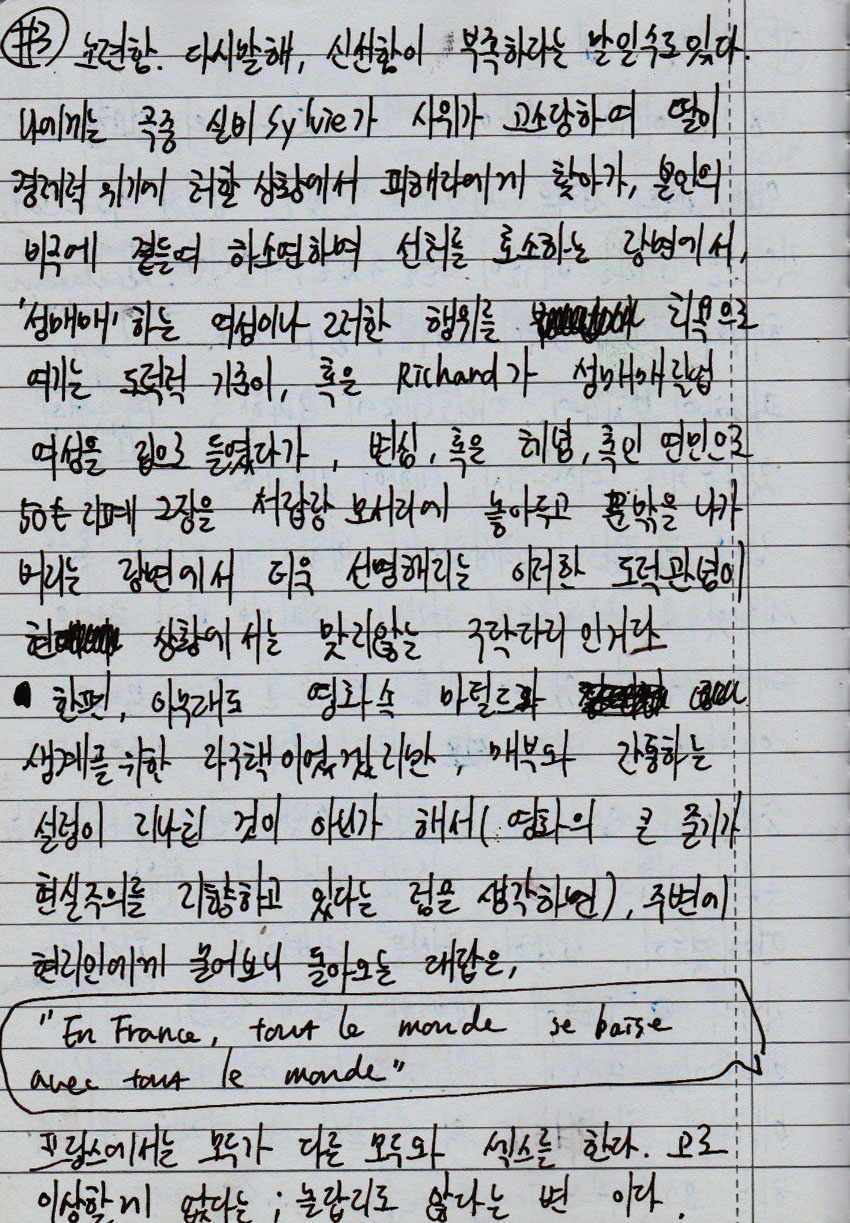 #3 노련함. 다시말해, 신선함이 부족하다는 말일수도있다.
나에게는 극중 실비 Sylvie가 사위가 고소당하여 딸이
경제적 위기에 처할 상황에서 피해자에게 찾아가, 본인의
비극에 곁들여 하소연하며 선처를 호소하는 장면에서,
'성매매' 하는 여성이나 그러한 행위를 치욕으로
여기는 도덕적 기준이, 혹은 Richard가 성매매직업
여성을 집으로 들였다가, 변심, 혹은 체념, 혹인 연민으로
50유로지폐 2장을 서랍장 모서리에 놓아두고 문밖을 나가
버리는 장면에서 더욱 선명해지는 이러한 도덕관념이
현 상황에서는 맞지않는 구닥다리인거다
한편, 아무래도 영화속 마틸드와
생계를 위한 자구책이었겠지만, 매부와 간통하는
설정이 지나친 것이 아닌가 해서(영화의 큰 줄기가
현실주의를 지향하고 있다는 점을 생각하면), 주변에
현지인에게 물어보니 돌아오는 대답은,
"En France, tout le monde se baise
avec tout le monde"
프랑스에서는 모두가 다른 모두와 섹스를 한다. 고로
이상할게 없다는; 놀랍지도 않다는 변 이다.